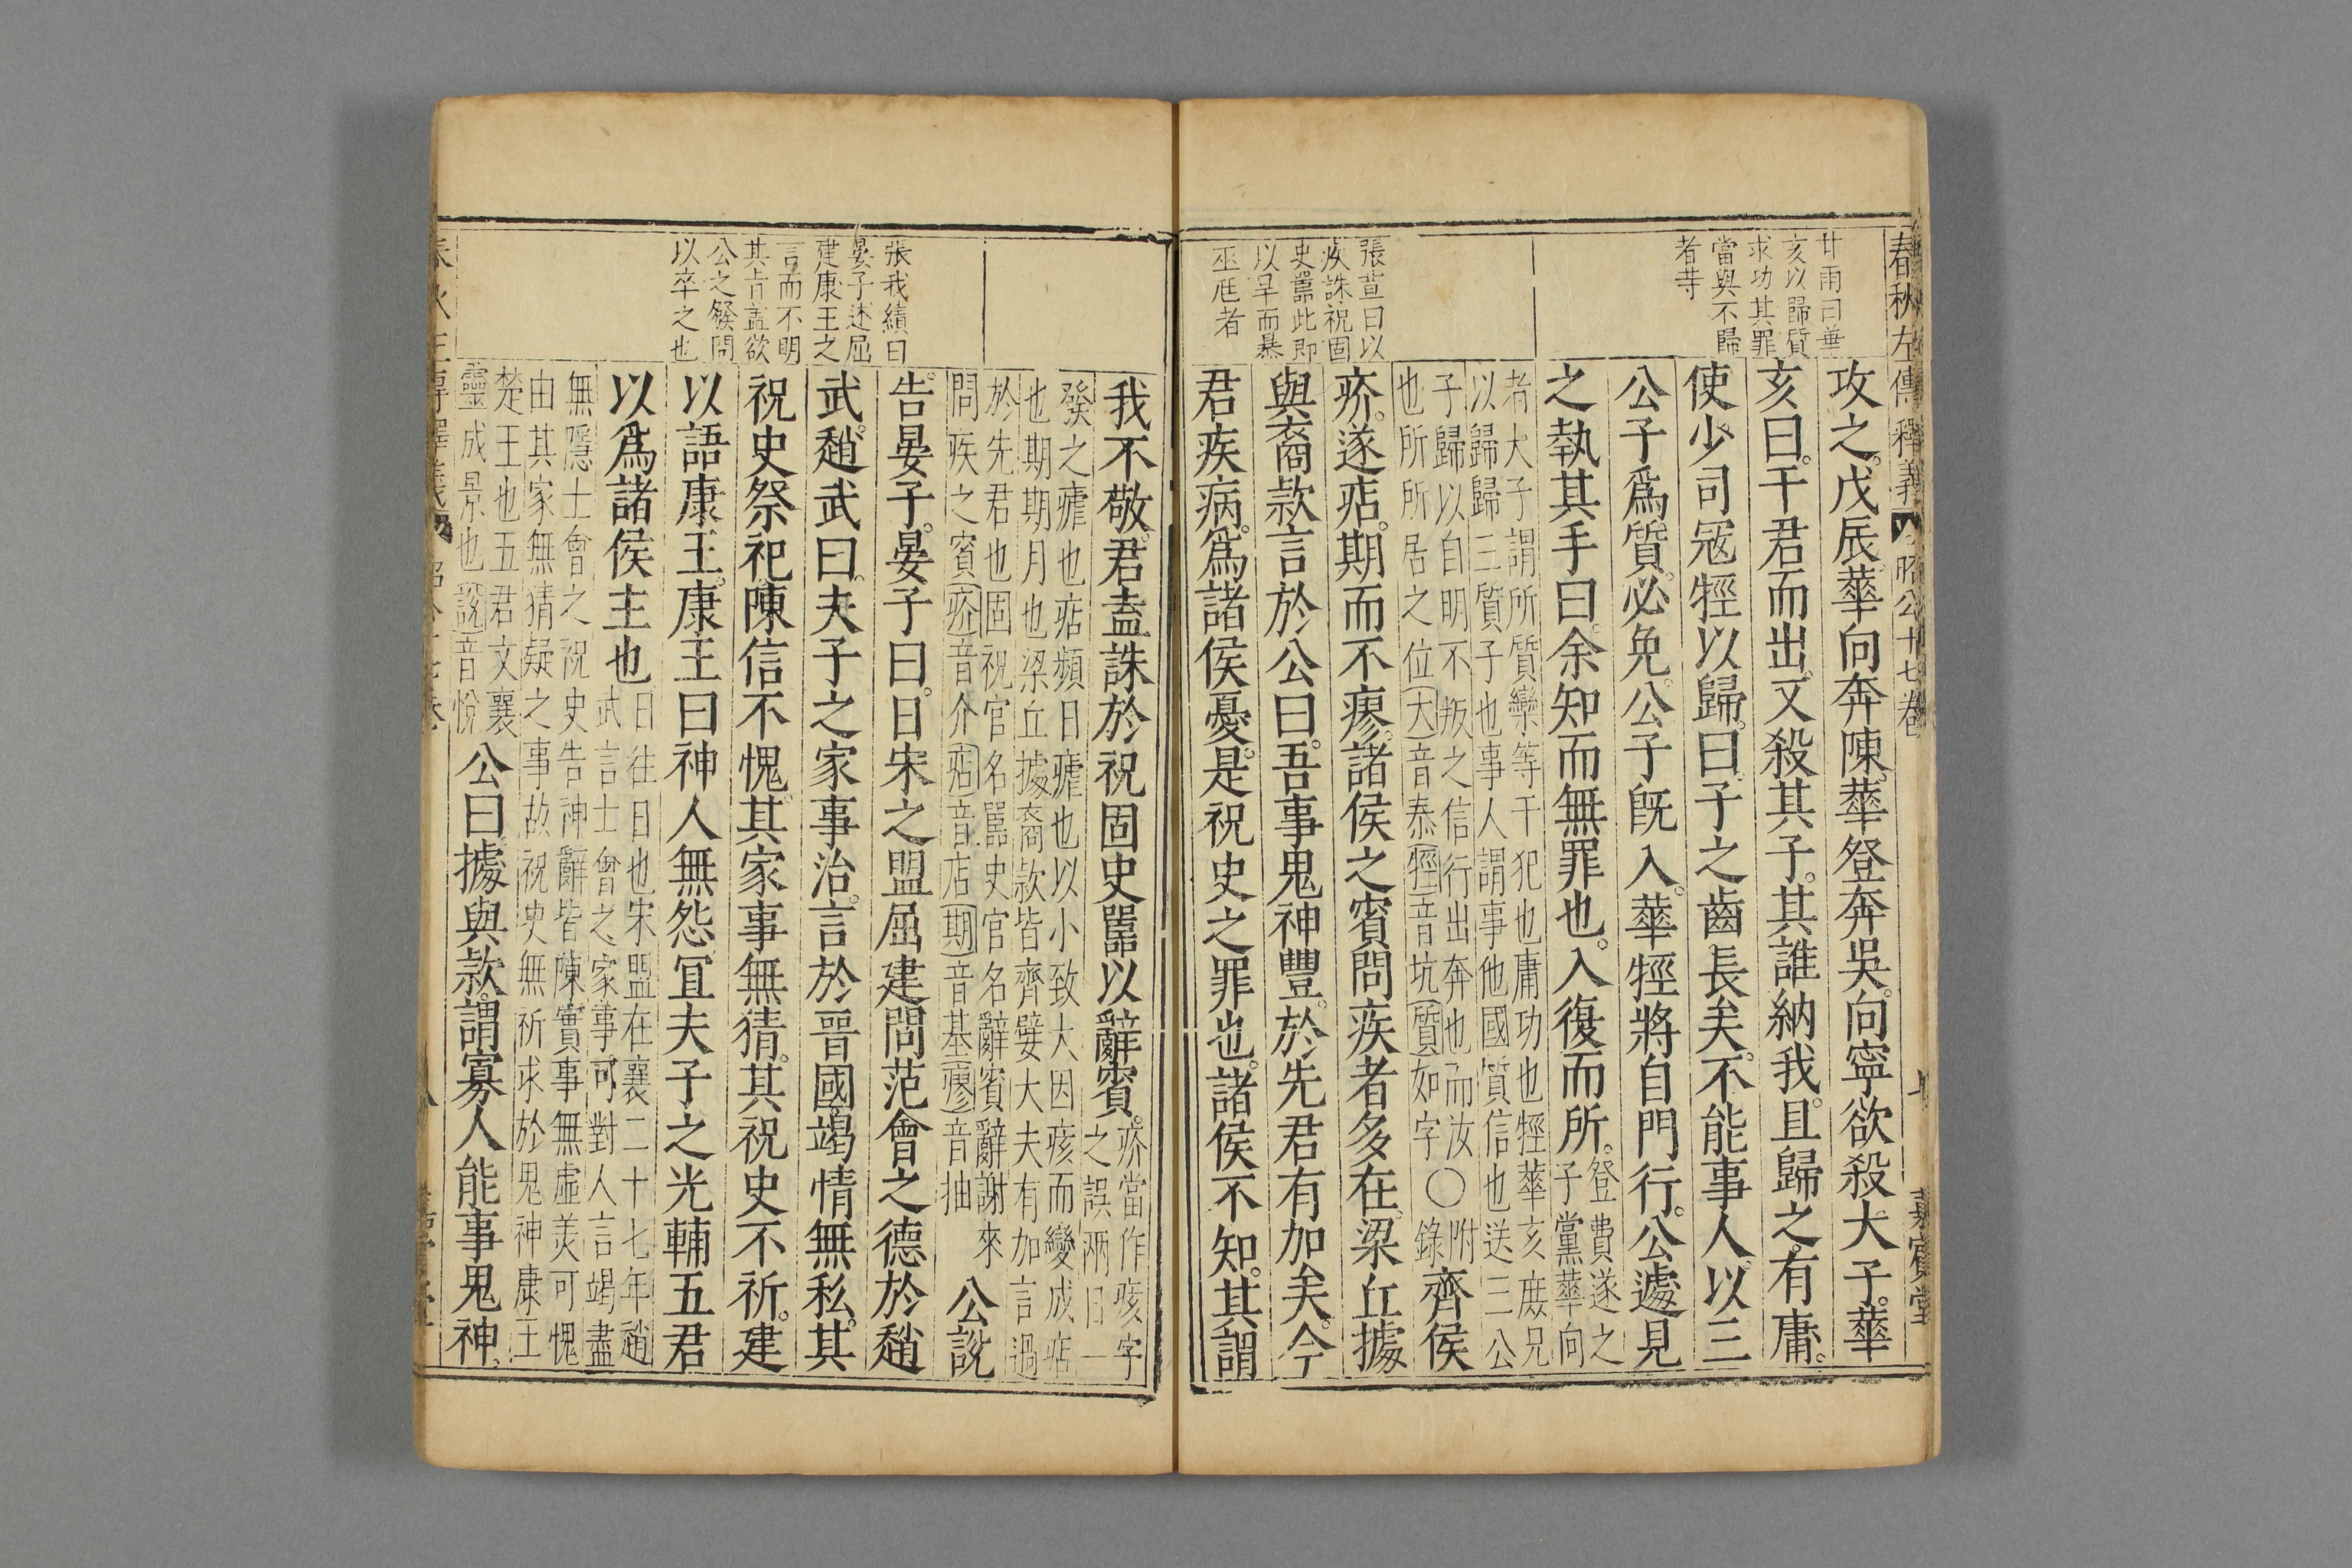 春秋左傳釋義 昭公十七卷 七 嘉賓堂
甘雨曰華
亥以歸質
求功其罪
當與不歸
者等
攻之。戊辰。華向奔陳。華登奔吳。向寧欲殺大子。華
亥曰。干君而出。又殺其子。其誰納我。且歸之。有庸。
使少司寇牼以歸。曰。子之齒長矣。不能事人。以三
公子爲質。必免。公子旣入。華牼將自門行。公遽見
之執其手曰。余知而無罪也。入復而所。
登費遂之
子黨華向
者大子謂所質欒等干犯也庸功也牼華亥庶兄
以歸歸三質子也事人謂事他國質信也送三公
子歸以自明不叛之信行出奔也而汝
也所所居之位大音泰牼音坑質如字
〇附
錄
齊侯
張萱曰以
疾誅祝固
史嚚此即
以旱而暴
巫尫者
疥。遂痁。期而不瘳。諸侯之賓問疾者多在。梁丘據
與裔款言於公曰。吾事鬼神豐。於先君有加矣。今
君疾病。爲諸侯憂。是祝史之罪也。諸侯不知。其謂
我不敬。君盍誅於祝固史嚚以辭賓。
疥當作痎字
之誤兩日一
發之瘧也痁頻日瘧也以小致大因痎而變成痁
也期期月也梁丘據裔款皆齊嬖大夫有加言過
於先君也固祝官名嚚史官名辭賓辭謝來
問疾之賓疥音介痁音店期音基瘳音抽
公說
張我續曰
晏子述屈
建康王之
言而不明
其旨盖欲
公之發問
以卒之也
告晏子。晏子曰。日宋之盟屈建問范會之德於趙
武。趙武曰。夫子之家事治。言於晉國。竭情無私。其
祝史祭祀。陳信不愧。其家事無猜。其祝史不祈。建
以語康王。康王曰神人無怨宜夫子之光輔五君
以爲諸侯主也
日往日也宋盟在襄二十七年趙
武言士會之家事可對人言竭盡
無隱士會之祝史告神辭皆陳實事無虛美可愧
由其家無猜疑之事故祝史無祈求於鬼神康王
楚王也五君文襄
靈成景也說音悅
公曰據與款。謂寡人能事鬼神。